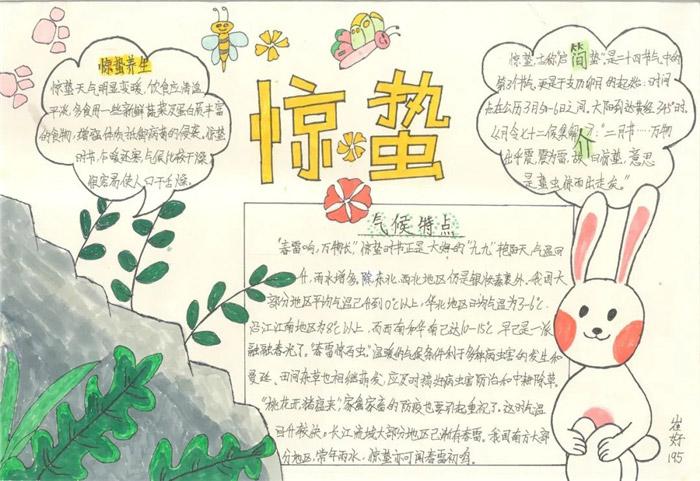 惊蛰
惊蛰养生
惊蛰天气明显变暖,饮食应清温
平淡,多食用一些新鲜蔬菜及蛋白质丰富
的食物,增强体质抵御病毒的侵袭。惊蛰
时节,乍暖还寒,气候比较干燥,
很容易使人口干舌燥。
简介
惊蛰,古称“启蛰”,是二十四节气中的
第3个节气,更是干支历卯月的起始;时间
点在公历3月5-6日之间,太阳到达黄经345°时。
《月令七十二候集解》:“二月节……万物
出乎震,震为雷,故曰惊蛰,意思
是蛰虫惊而出走矣。”
气候特点
“春雷响,万物长”,惊蛰时节正是大好的“九九”艳阳天,气温回
升,雨水增多。除东北、西北地区仍是银妆素裹外,我国大
部分地区平均气温已升到0℃以上,华北地区日均气温为3-6℃,
沿江江南地区为8℃以上,而西南和华南已达10-15℃,早已是一派
融融春光了。“春雷惊百虫”,温暖的气候条件利于多种病虫害的发生和
蔓延,田间杂草也相继萌发,应及时搞好病虫害防治和中耕除草。
“桃花开,猪瘟来”,家禽家畜的防疫也要引起重视了。这时气温
回升较快,长江流域大部分地区已渐有春雷。我国南方大部
分地区,常年雨水、惊蛰亦可闻春雷初鸣。
崔好
195